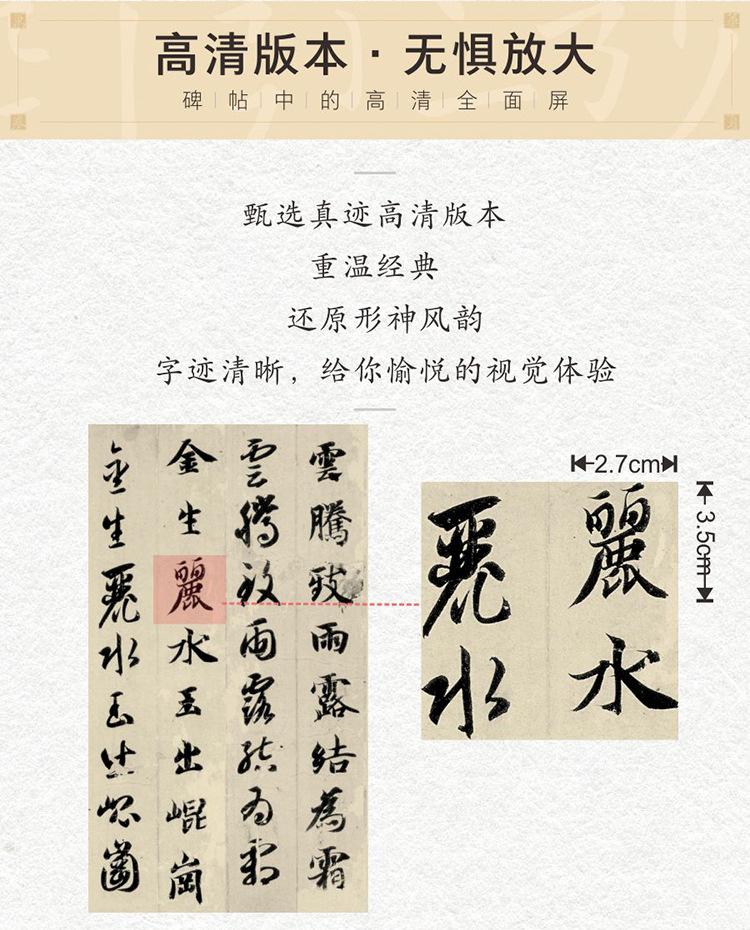 高清版本·无惧放大
碑帖中的高清全面屏
甄选真迹高清版本
重温经典
还原形神风韵
字迹清晰，给你愉悦的视觉体验
雲騰致雨露結為霜
雲騰致雨露結為霜
金生麗水玉出崐崗
金生麗水玉出崐崗
2.7cm
3.5cm
麗水
麗水